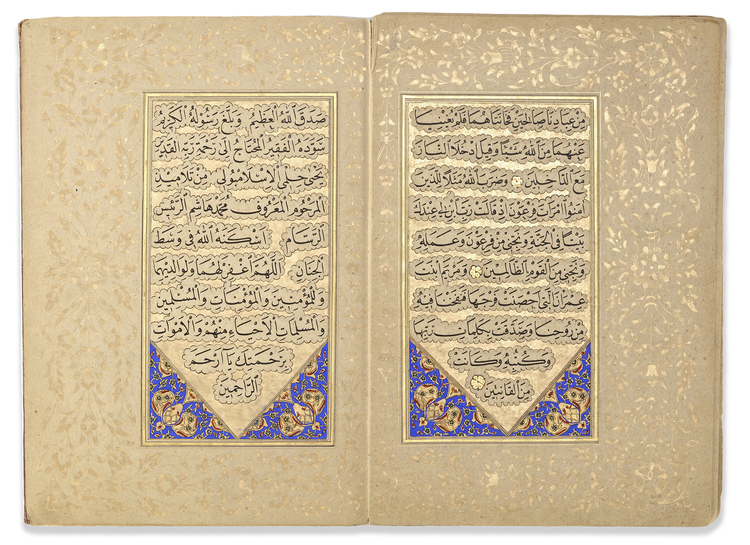 مِنْ عِبَادِنَا صَالِحَيْنِ فَخَانَتَاهُمَا فَلَمْ يُغْنِيَا
عَنْهُمَا مِنَ اللَّهِ شَيْئًا وَقِيلَ ادْخُلَا النَّارَ
مَعَ الدَّاخِلِينَ وَضَرَبَ اللَّهُ مَثَلًا لِلَّذِينَ
آمَنُوا امْرَأَتَ فِرْعَوْنَ إِذْ قَالَتْ رَبِّ ابْنِ لِي عِنْدَكَ
بَيْتًا فِي الْجَنَّةِ وَنَجِّنِي مِنْ فِرْعَوْنَ وَعَمَلِهِ
وَنَجِّنِي مِنَ الْقَوْمِ الظَّالِمِينَ وَمَرْيَمَ ابْنَتَ
عِمْرَانَ الَّتِي أَحْصَنَتْ فَرْجَهَا فَنَفَخْنَا فِيهِ
مِنْ رُوحِنَا وَصَدَّقَتْ بِكَلِمَاتِ رَبِّهَا
وَكُتُبِهِ وَكَانَتْ
مِنَ الْقَانِتِينَ
صَدَقَ اللَّهُ الْعَظِيمُ وَبَلَّغَ رَسُولُهُ الْكَرِيمُ
سَوَّدَهُ الْفَقِيرُ الْمُحْتَاجُ إِلَى رَحْمَةِ رَبِّهِ الْقَدِيرِ
يَحْيَى حِلْمِي الْإِسْلَامْبُولِي مِنْ تَلَامِيذِ
الْمَرْحُومِ الْمَعْرُوفِ مُحَمَّد هَاشِم الرَّئِيسِ
الرَّسَّامِ أَسْكَنَهُ اللَّهُ فِي وَسَطِ
الْجِنَانِ اللَّهُمَّ اغْفِرْ لَهُمَا وَلِوَالِدَيْهِمَا
وَلِلْمُؤْمِنِينَ وَالْمُؤْمِنَاتِ وَالْمُسْلِمِينَ
وَالْمُسْلِمَاتِ الْأَحْيَاءِ مِنْهُمْ وَالْأَمْوَاتِ
بِرَحْمَتِكَ يَا أَرْحَمَ
الرَّاحِمِينَ